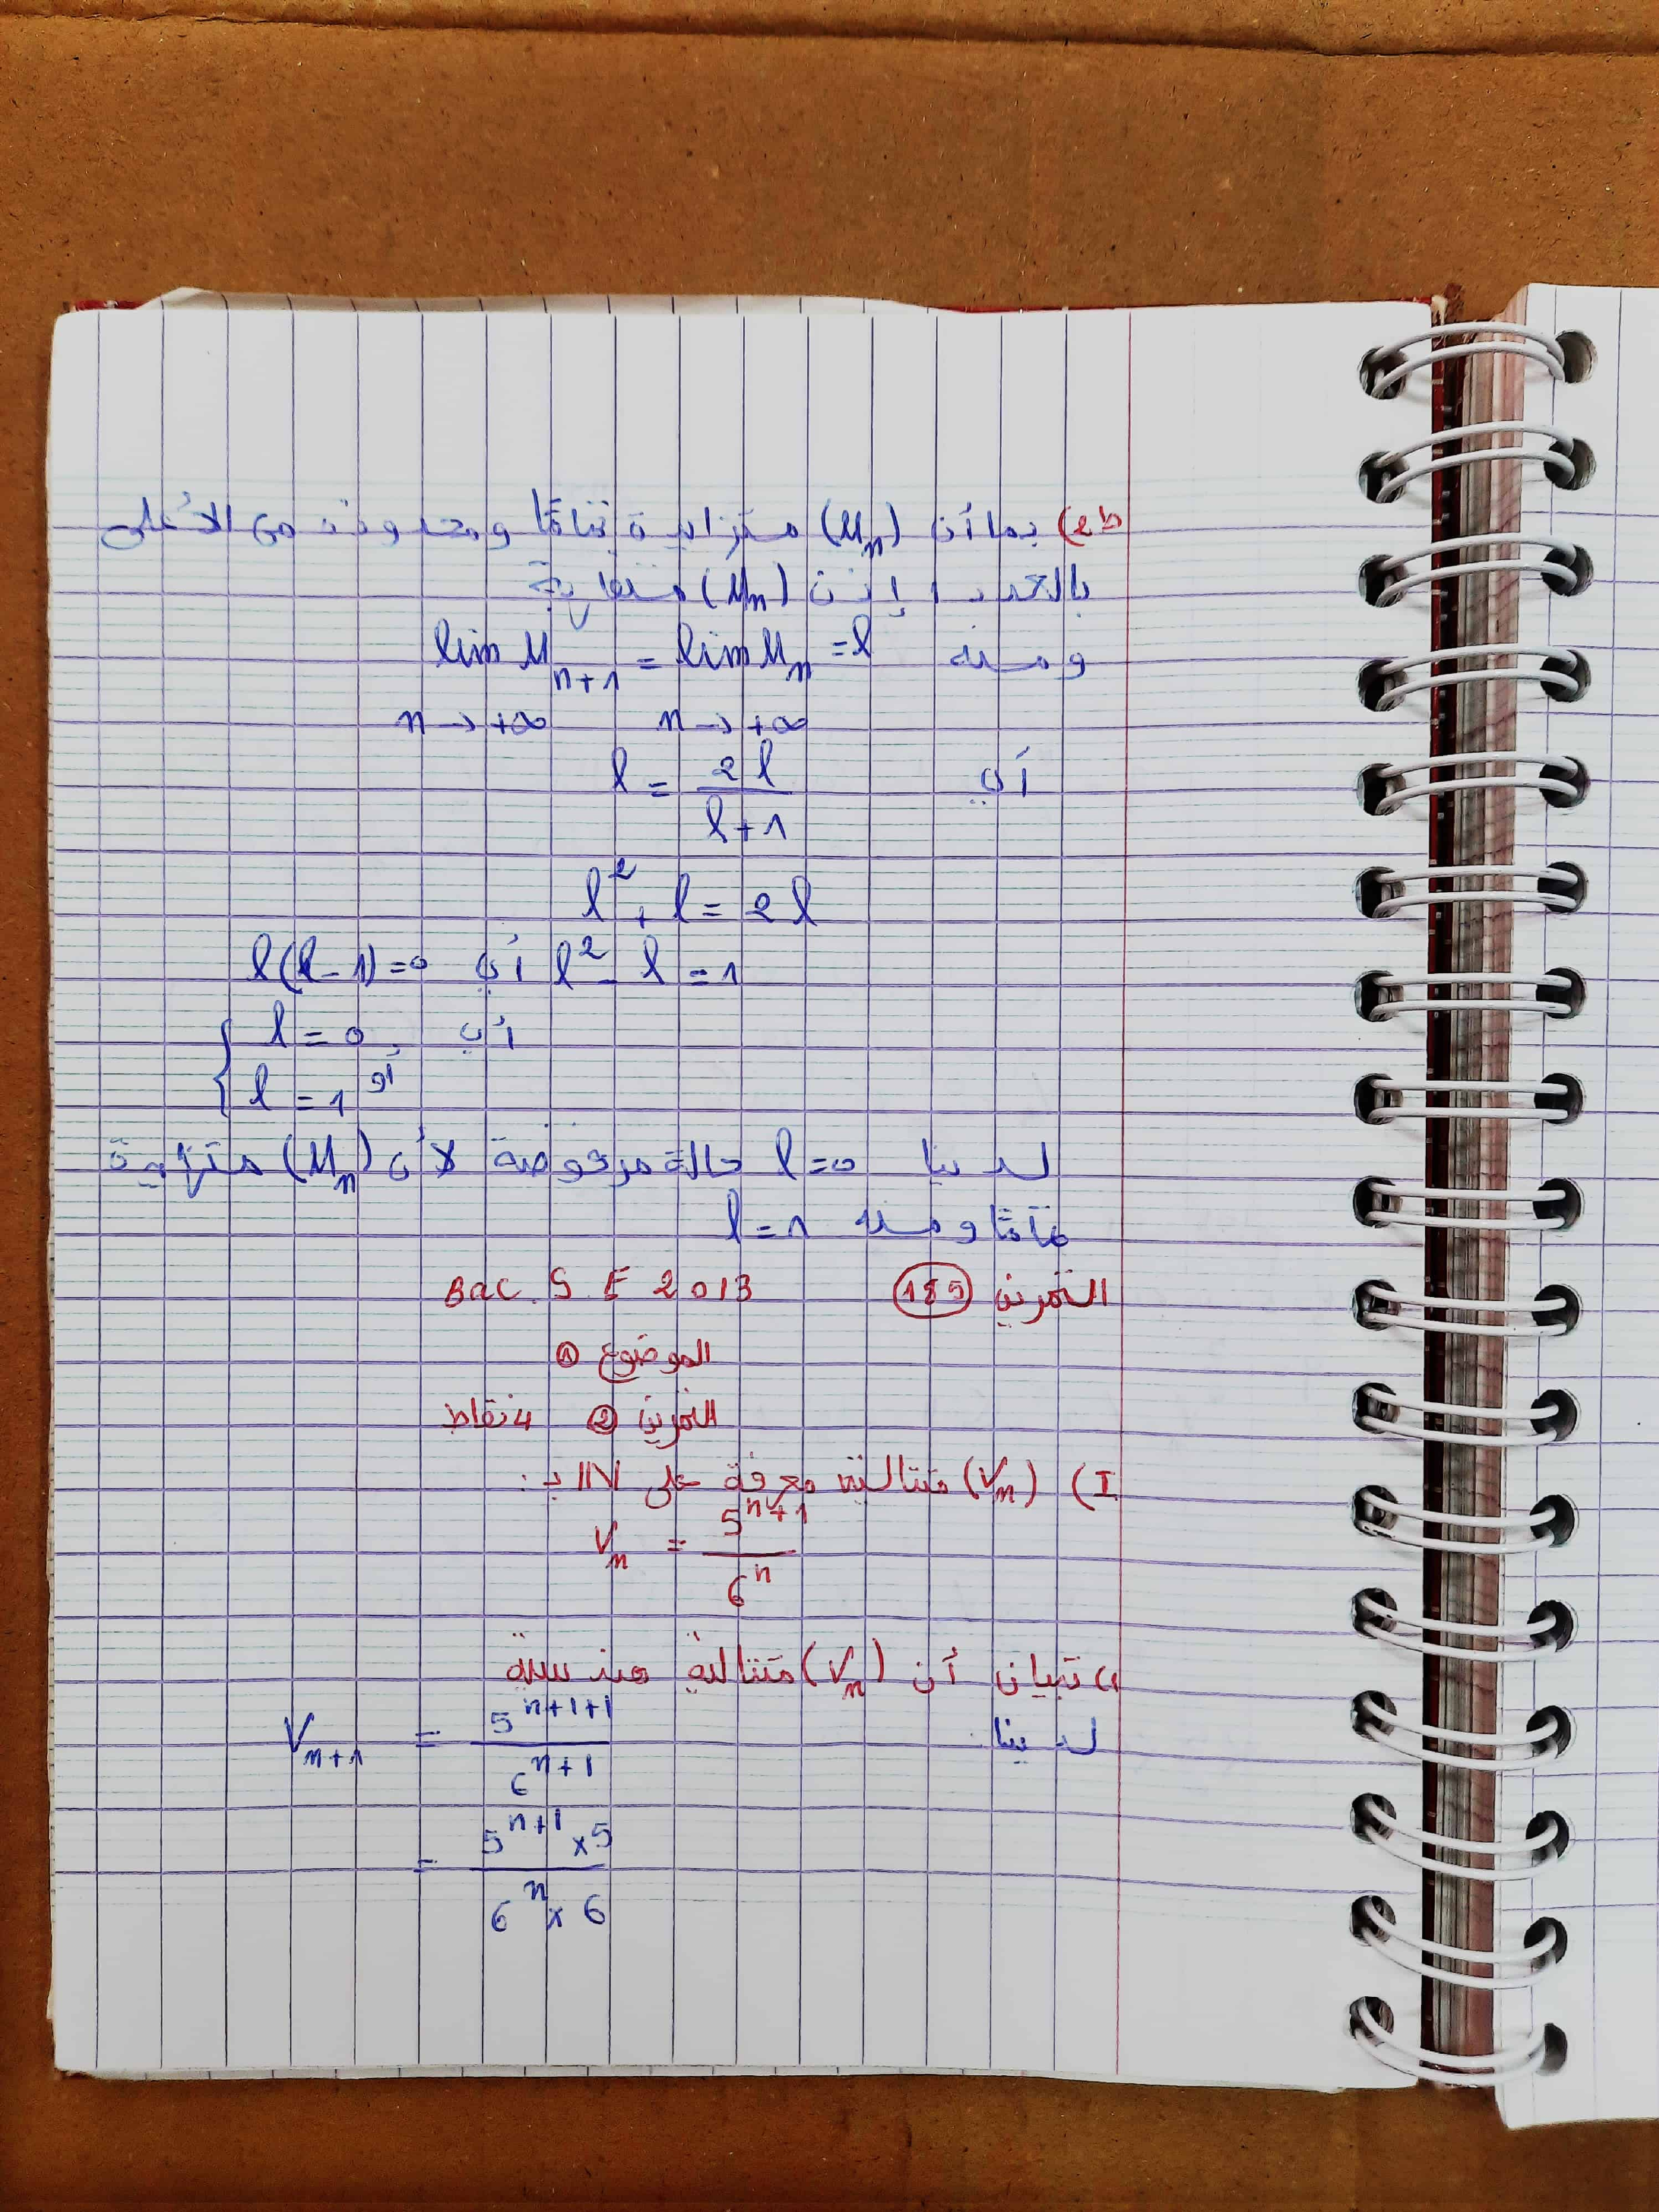 2ط) بما أن (Un) متزايدة تمامًا و محدودة من الأعلى
بالعدد 1 إذن (Un) متقاربة
ومنه lim Un+1 = lim Un = l
n→+∞ n→+∞
أي l = 2l / l+1
l² + l = 2l
l² - l = 1 أي l(l-1)=0
أي { l = 0
أو l = 1
لدينا l=0 حالة مرفوضة لأن (Un) متزايدة
تمامًا ومنه l = 1
التمرين 185 Bac S E 2013
الموضوع 1
التمرين 2 4 نقاط
I) (Vn) متتالية معرفة على IN بـ :
Vn = 5^n+1 / 6^n
1) تبيان أن (Vn) متتالية هندسية
لدينا Vn+1 = 5^n+1+1 / 6^n+1
= 5^n+1 × 5 / 6^n × 6